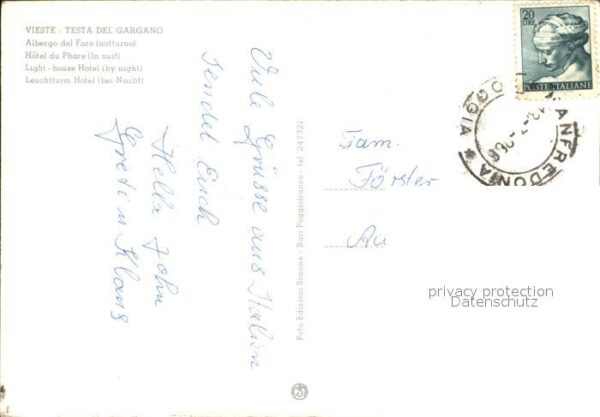 VIESTE - TESTA DEL GARGANO
Albergo del Faro (notturno)
Hôtel du Phare (la nuit)
Light - house Hotel (by night)
Leuchtturm Hotel (bei Nacht)
Viele Grüsse aus Italien
sendet Euch
Hella John
Greti u Klaus
Foto Edizioni Simone - Bari Poggiofranco - tel. 247321
Fam.
Förster
Au
20
LIRE
POSTE ITALIANE
MANFREDONIA * FOGGIA
privacy protection
Datenschutz